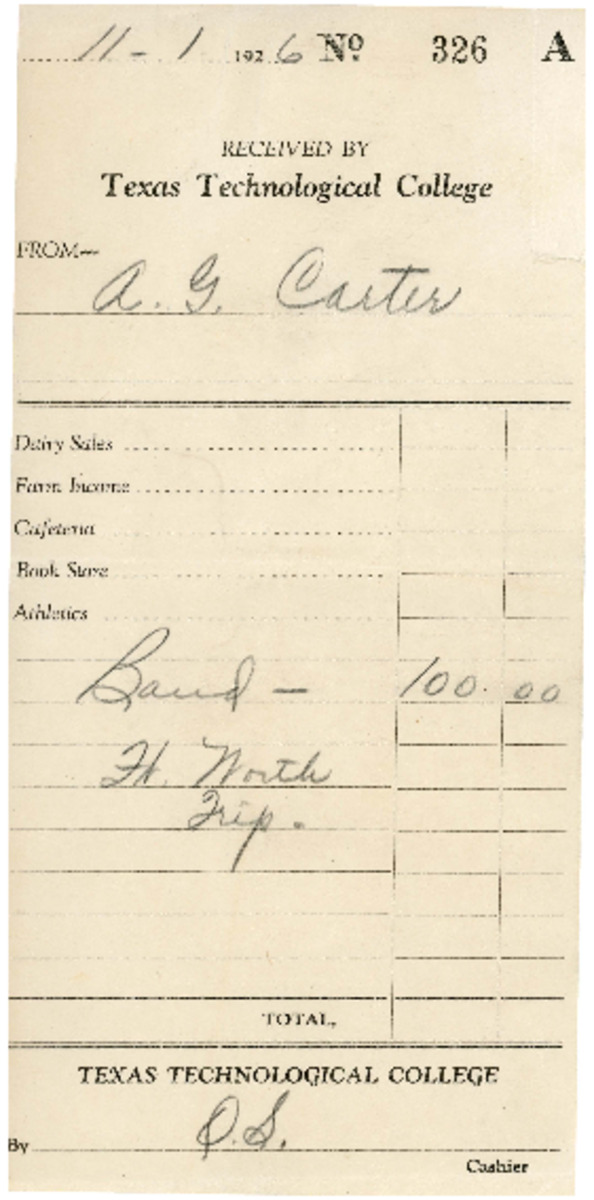 11 - 1 1926 Nº 326 A
RECEIVED BY
Texas Technological College
FROM—
A. G. Carter
Dairy Sales
Farm Income
Cafeteria
Book Store
Athletics
Band — 100.00
Ft. Worth
Trip.
TOTAL,
TEXAS TECHNOLOGICAL COLLEGE
By O.S.
Cashier